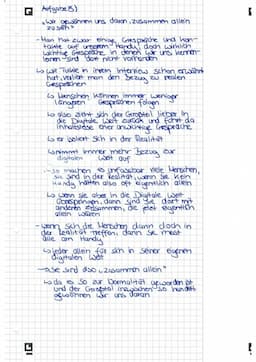 Aufgabe 5)
„Wir gewöhnen uns daran, zusammen allein
zu sein"
- Man hat zwar einige Gespräche und Kon-
takte auf unserem Handy, doch wirklich
wichtige Gespräche in denen wir uns kennen-
lernen sind dort nicht vorhanden
↳ wie Turkle in ihrem Interview schon erwähnt
hat, verliert man den Bezug zu realen
Gesprächen
↳ Menschen können immer weniger
längeren Gesprächen folgen
↳ also zieht sich der Großteil lieber in
die Digitale Welt zurück und führt da
inhaltslose eher unwichtige Gespräche
↳ er isoliert sich in der Realität
↳ nimmt immer mehr Bezug zur
digitalen Welt auf
- so machen es unfassbar viele Menschen,
sie sind in der Realität, wenn sie kein
Handy hätten also oft eigentlich allein
↳ Wenn sie aber in die Digitale Welt
überspringen, dann sind sie dort mit
anderen zusammen, die jetzt eigentlich
allein wären
- wenn sich die Menschen dann doch in
der Realität treffen, dann sie meist
alle am Handy
↳ jeder allein für sich in seiner eigenen
digitalen Welt
→ Sie sind also „zusammen allein"
↳ da es so zur Normalität geworden ist
und der Großteil so handelt
gewöhnen wir uns daran